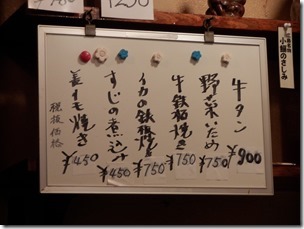 牛タン ¥900
野菜いため ¥750
牛鉄板焼き ¥750
イカの鉄板焼き ¥750
すじの煮込み ¥450
長イモ焼き ¥450
税抜価格
小鰯のさしみ